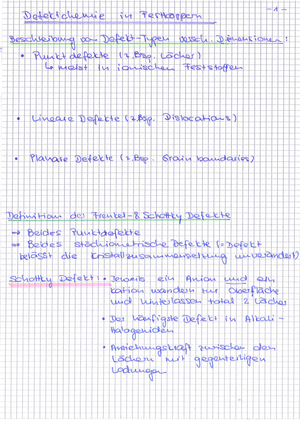 - 1 -
Defektchemie in Festkörpern
Beschreibung von Defekt-Typen versch. Dimensionen:
• Punktdefekte (z.Bsp. Löcher)
↳ meist in ionischen Feststoffen
• Lineare Defekte (z.Bsp. Dislocations)
• Planare Defekte (z.Bsp. Grain boundaries)
Definition des Frenkel- & Schottky Defekts
→ Beides Punktdefekte
→ Beides stöchiometrische Defekte (= Defekt
belässt die Kristallzusammensetzung unverändert)
Schottky Defekt: • Jeweils ein Anion und ein
Kation wandern zur Oberfläche
und hinterlassen total 2 Löcher
• Der häufigste Defekt in Alkali-
Halogeniden
• Anziehungskraft zwischen den
Löchern mit gegenteiligen
Ladungen